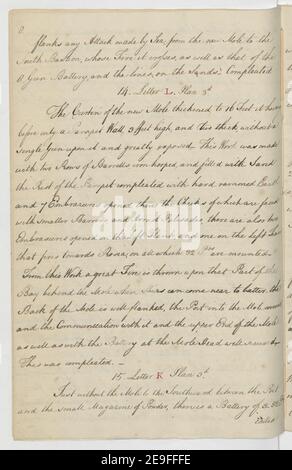 flanks any Attack made by Sea, from the new Mole to the
South Bastion, whose Fire it crosses, as well as that of the
8 Gun Battery, and the lines, on the Sands, Compleated
14. Letter L. Plan 3d
The Crotchet of the new Mole thickened to 16 feet, it having
before only a Parapet Wall 3 feet high, and this thick, without a
Single Gun upon it and greatly exposed. This Work was made
with two Rows of Barrells iron hooped, and filled with Sand
the Rest of the Parapet compleated with hard rammed Earth
and 7 Embrazures opened there the Cheeks of which are faced
with smaller Barrells there are also two
Embrazures opened on the and one on the left
that fires towards Rosia, on all which 32 Prs are mounted.
From this Work a great Fire is thrown upon that Part of the
Bay behind the Mole when Ships can come near to batter, the
Back of the Mole is well flanked, the Port into the Mole
and the Communication with it and the upper End of the Mole
as well as with the Battery at the Mole Head well
This was compleated.
15 Letter K Plan 3d
Just without the Mole to the Southward between the Port
and the small Magazine of Powder, there is a Battery of
a
alamy
Image ID: 2E9FFFE
www.alamy.com